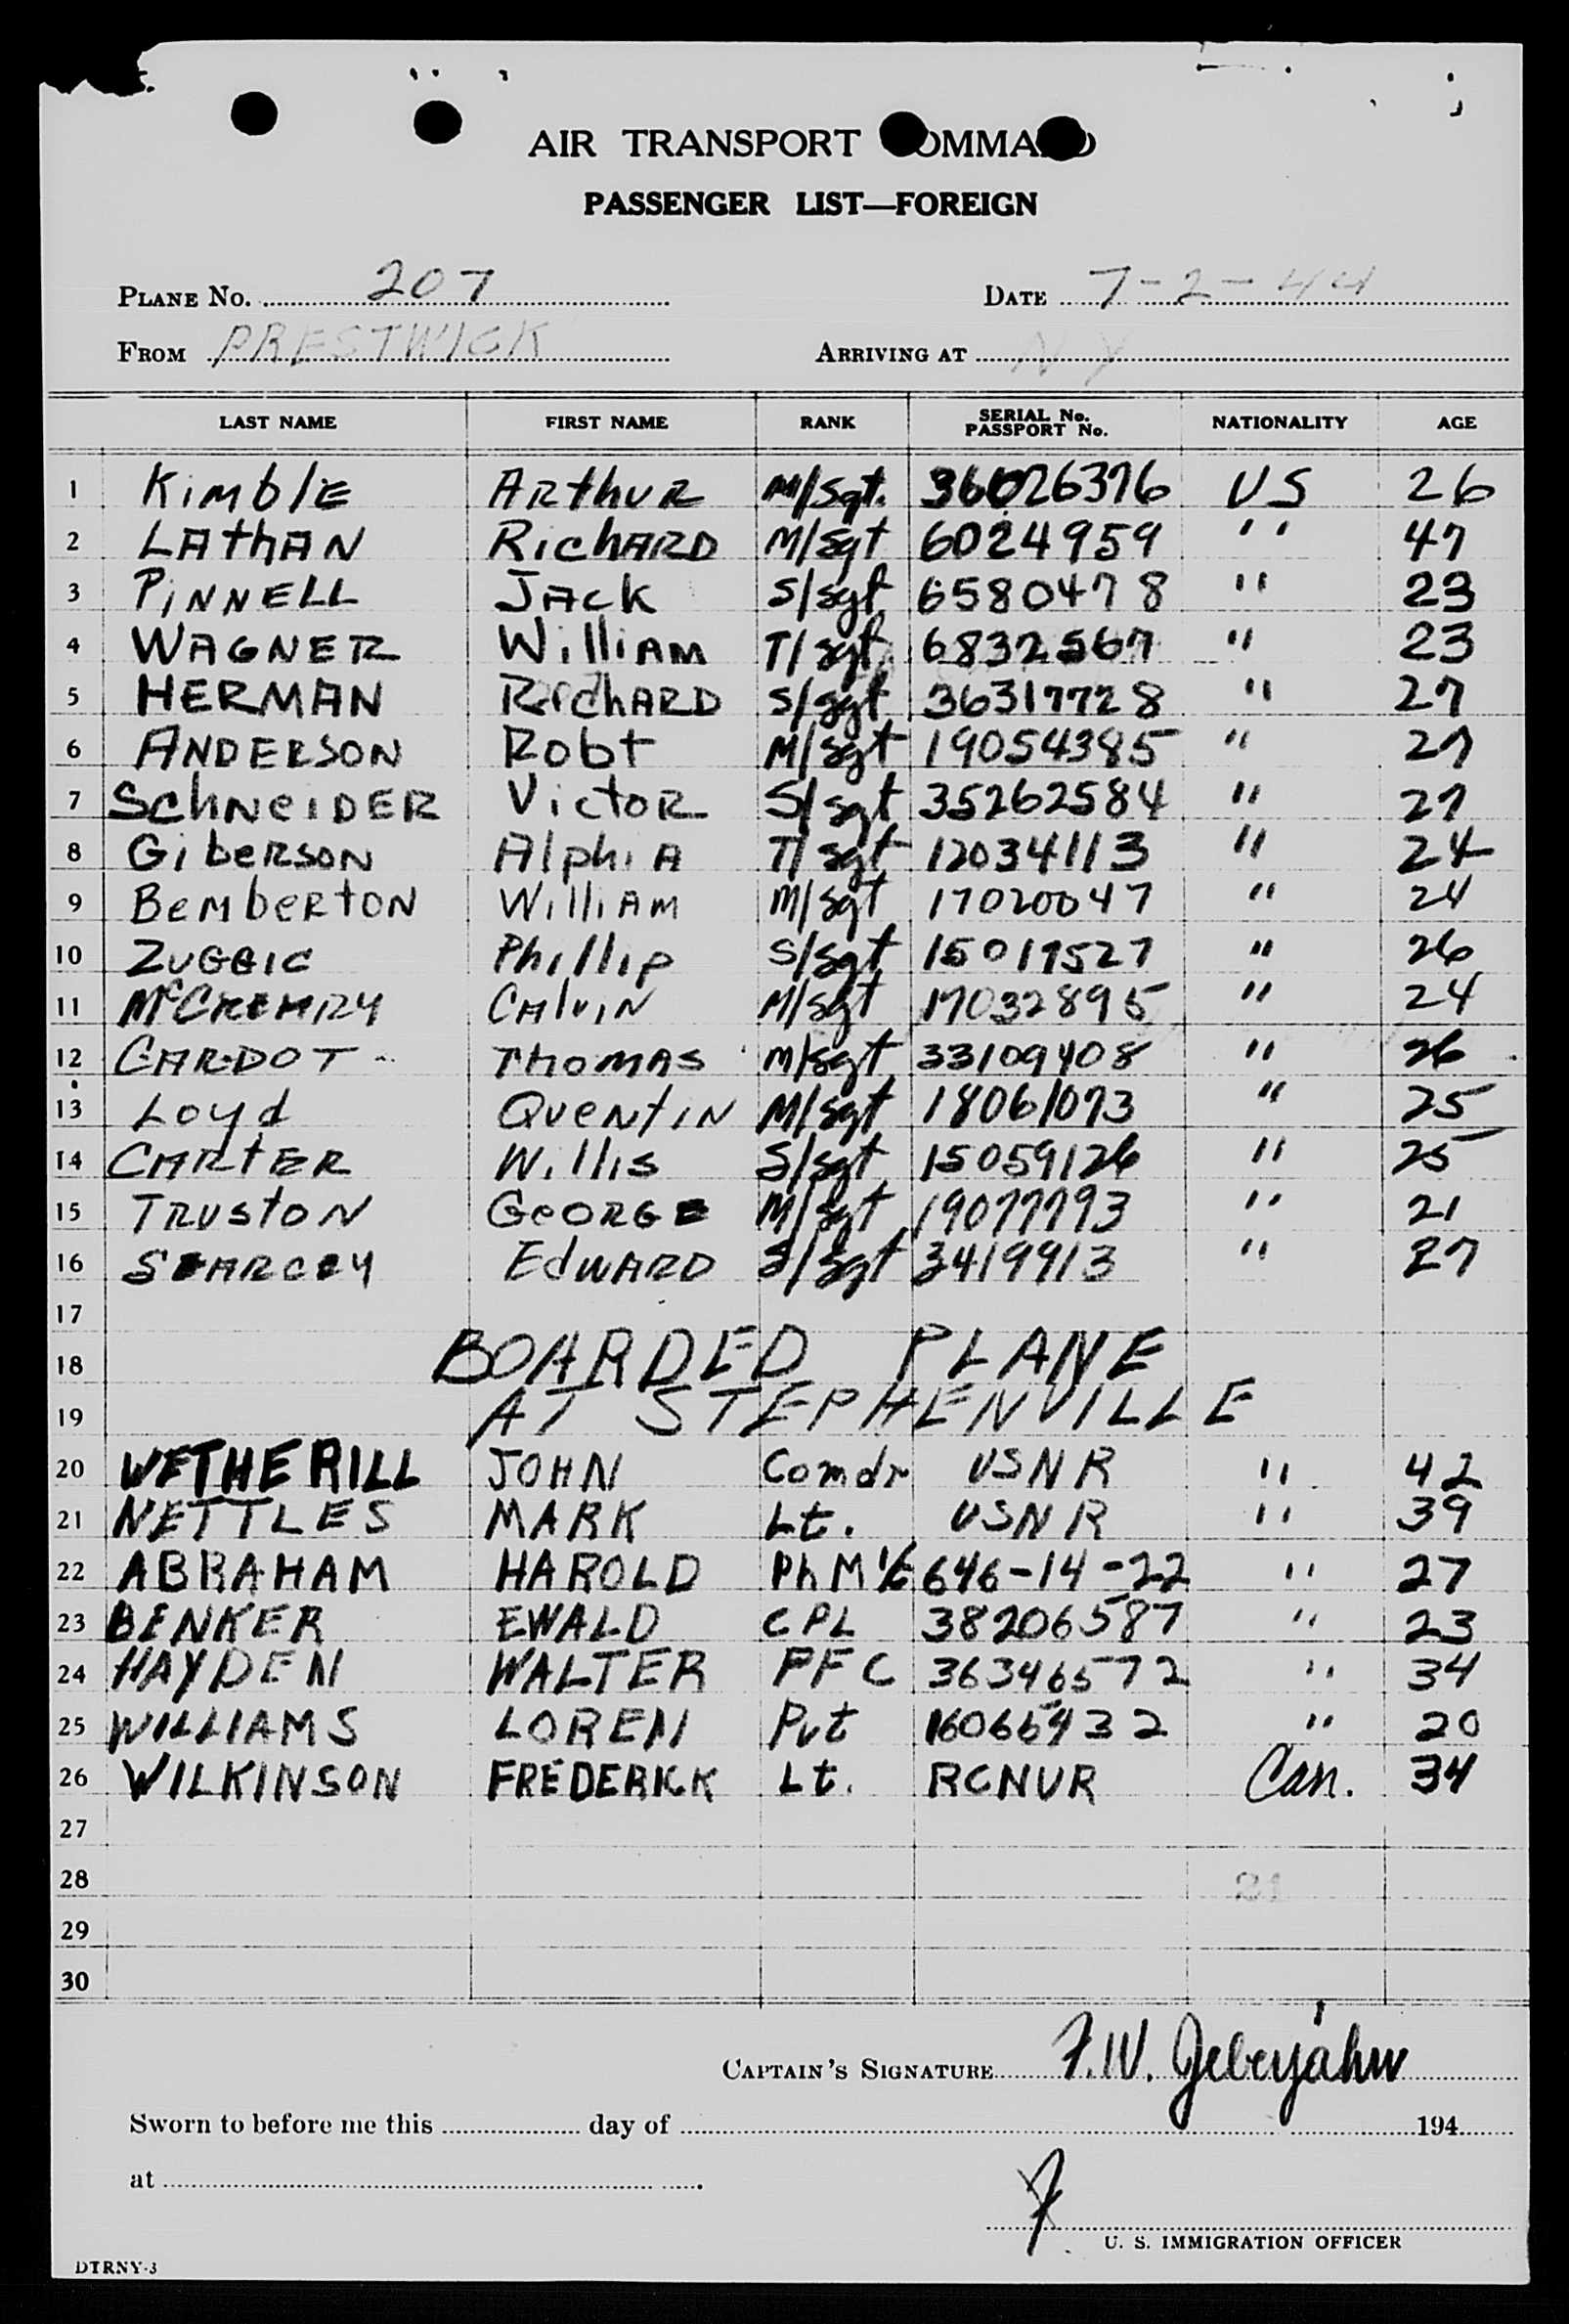 AIR TRANSPORT COMMAND
PASSENGER LIST—FOREIGN
PLANE No. 207 DATE 7-2-44
FROM PRESTWICK ARRIVING AT NY
LAST NAME FIRST NAME RANK SERIAL No. PASSPORT No. NATIONALITY AGE
1 KimblE ARthuR M/Sgt. 36026376 US 26
2 LAthAN RichARD M/Sgt 6024959 " 47
3 PiNNELL JAck S/Sgt 6580478 " 23
4 WAGNER WilliAM T/Sgt 6832567 " 23
5 HERMAN RichARD S/Sgt 36317728 " 27
6 ANDERSON Robt M/Sgt 19054385 " 27
7 SchNeiDER VictoR S/Sgt 35262584 " 27
8 GibeRSON AlphiA T/Sgt 12034113 " 24
9 BeMbeRtON WilliAM M/Sgt 17020047 " 24
10 ZUGGIC Phillip S/Sgt 15019527 " 26
11 McCREARY CAlviN M/Sgt 17032895 " 24
12 CARDOT ThOMAS M/Sgt 33109408 " 26
13 Loyd QueNtiN M/Sgt 18061073 " 25
14 CARtER Willis S/Sgt 15059126 " 25
15 TRUStON GeORGE M/Sgt 19077793 " 21
16 SEARCEY EdWARD S/Sgt 3419913 " 27
17
18 BOARDED PLANE
19 AT STEPHENVILLE
20 WETHERILL JOHN Comdr USNR " 42
21 NETTLES MARK Lt. USNR " 39
22 ABRAHAM HAROLD PhM 1/c 646-14-22 " 27
23 BENKER EWALD CPL 38206587 " 23
24 HAYDEN WALTER PFC 36346572 " 34
25 WILLIAMS LOREN Pvt 16065432 " 20
26 WILKINSON FREDERICK Lt. RCNVR Can. 34
27
28
29
30
CAPTAIN'S SIGNATURE F.W. Geberjahn
Sworn to before me this day of 194
at
U. S. IMMIGRATION OFFICER
DTRNY-3